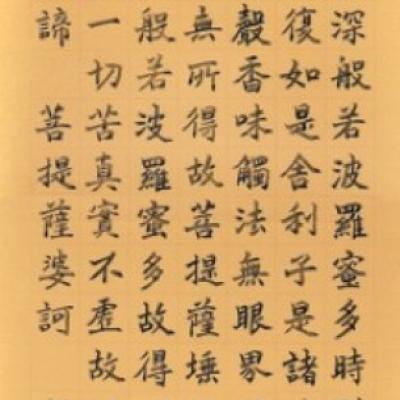 深般若波羅蜜多時
復如是舍利子是諸
聲香味觸法無眼界
無所得故菩提薩埵
般若波羅蜜多故得
一切苦真實不虛故
諦 菩提薩婆訶